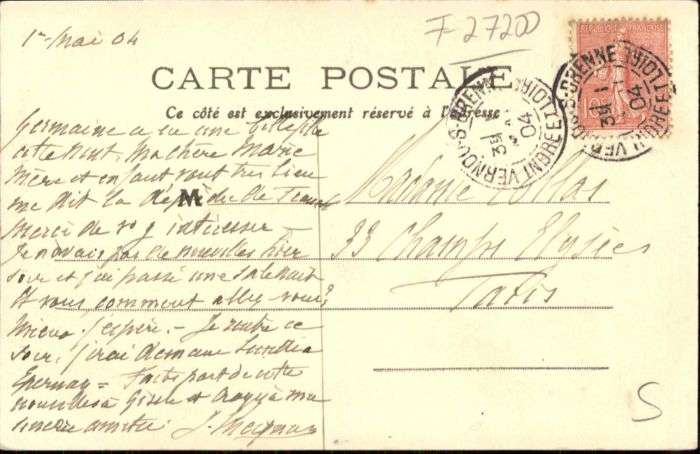 1er Mai 04
F 27200
CARTE POSTALE
Ce côté est exclusivement réservé à l'adresse
Germaine a eu une fillette
cette nuit. Ma chère Marie
Mère et enfant vont très bien
me dit la dép du
M
Merci de vs y intéresser -
Je n'avais pas de nouvelles hier
soir et j'ai passé une sale nuit
Et vous comment allez vous?
Mieux j'espère. - Je rentre ce
soir, j'irai demain
Epernay = Faites part de cette
nouvelle à Gisèle et croyez à ma
sincère amitié
Madame
33 Champs Elysées
Paris
REPUBLIQUE FRANÇAISE
VERNOU-S-BRENNE
INDRE ET LOIRE
04
VERNOU-S-BRENNE
INDRE ET LOIRE
04
S